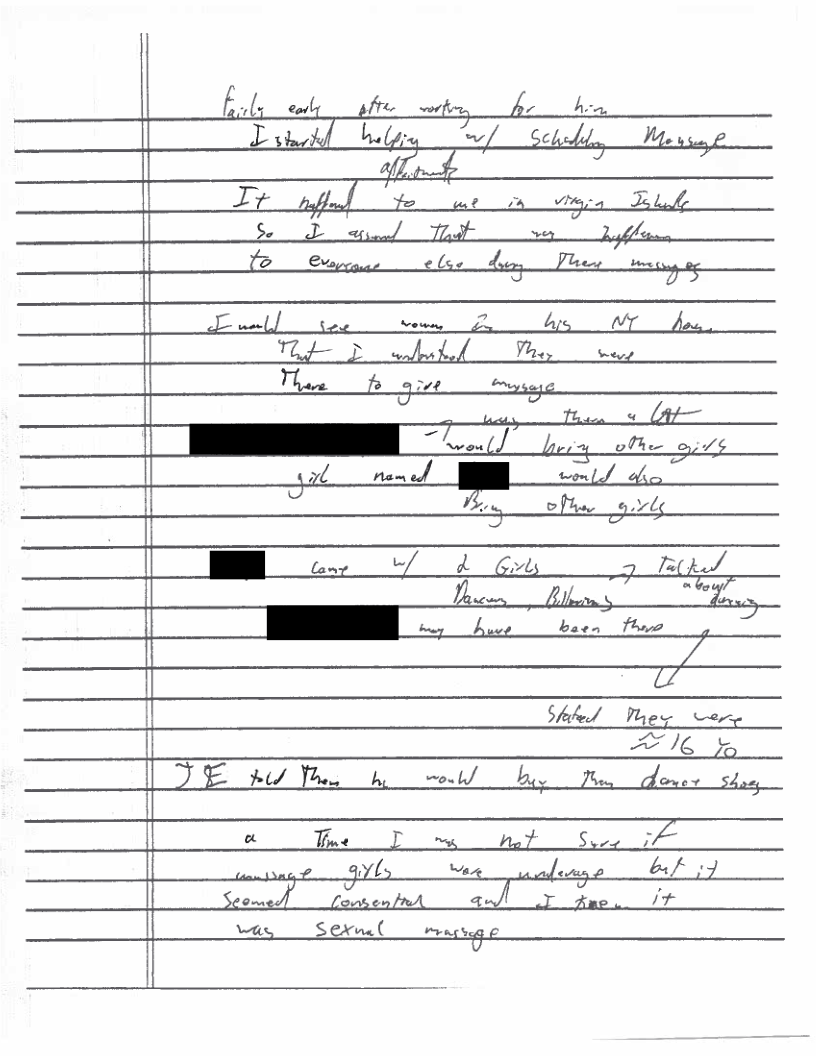 Fairly early after working for him
I started helping w/ scheduling Massage
appointments
It happened to me in virgin Islands
So I assumed That was happening
to everyone else during These massages
I would see women in his NY house
That I understood They were
There to give massage
was there a lot
→ would bring other girls
girl named would also
Bring other girls
came w/ 2 Girls → Talked
about
Dancers, Ballerinas dancing
may have been there
Stated They were
≈ 16 yo
JE told Them he would buy Them dance shoes
a Time I was not Sure if
massage girls were underage but it
Seemed Consentual and I knew it
was sexual massage